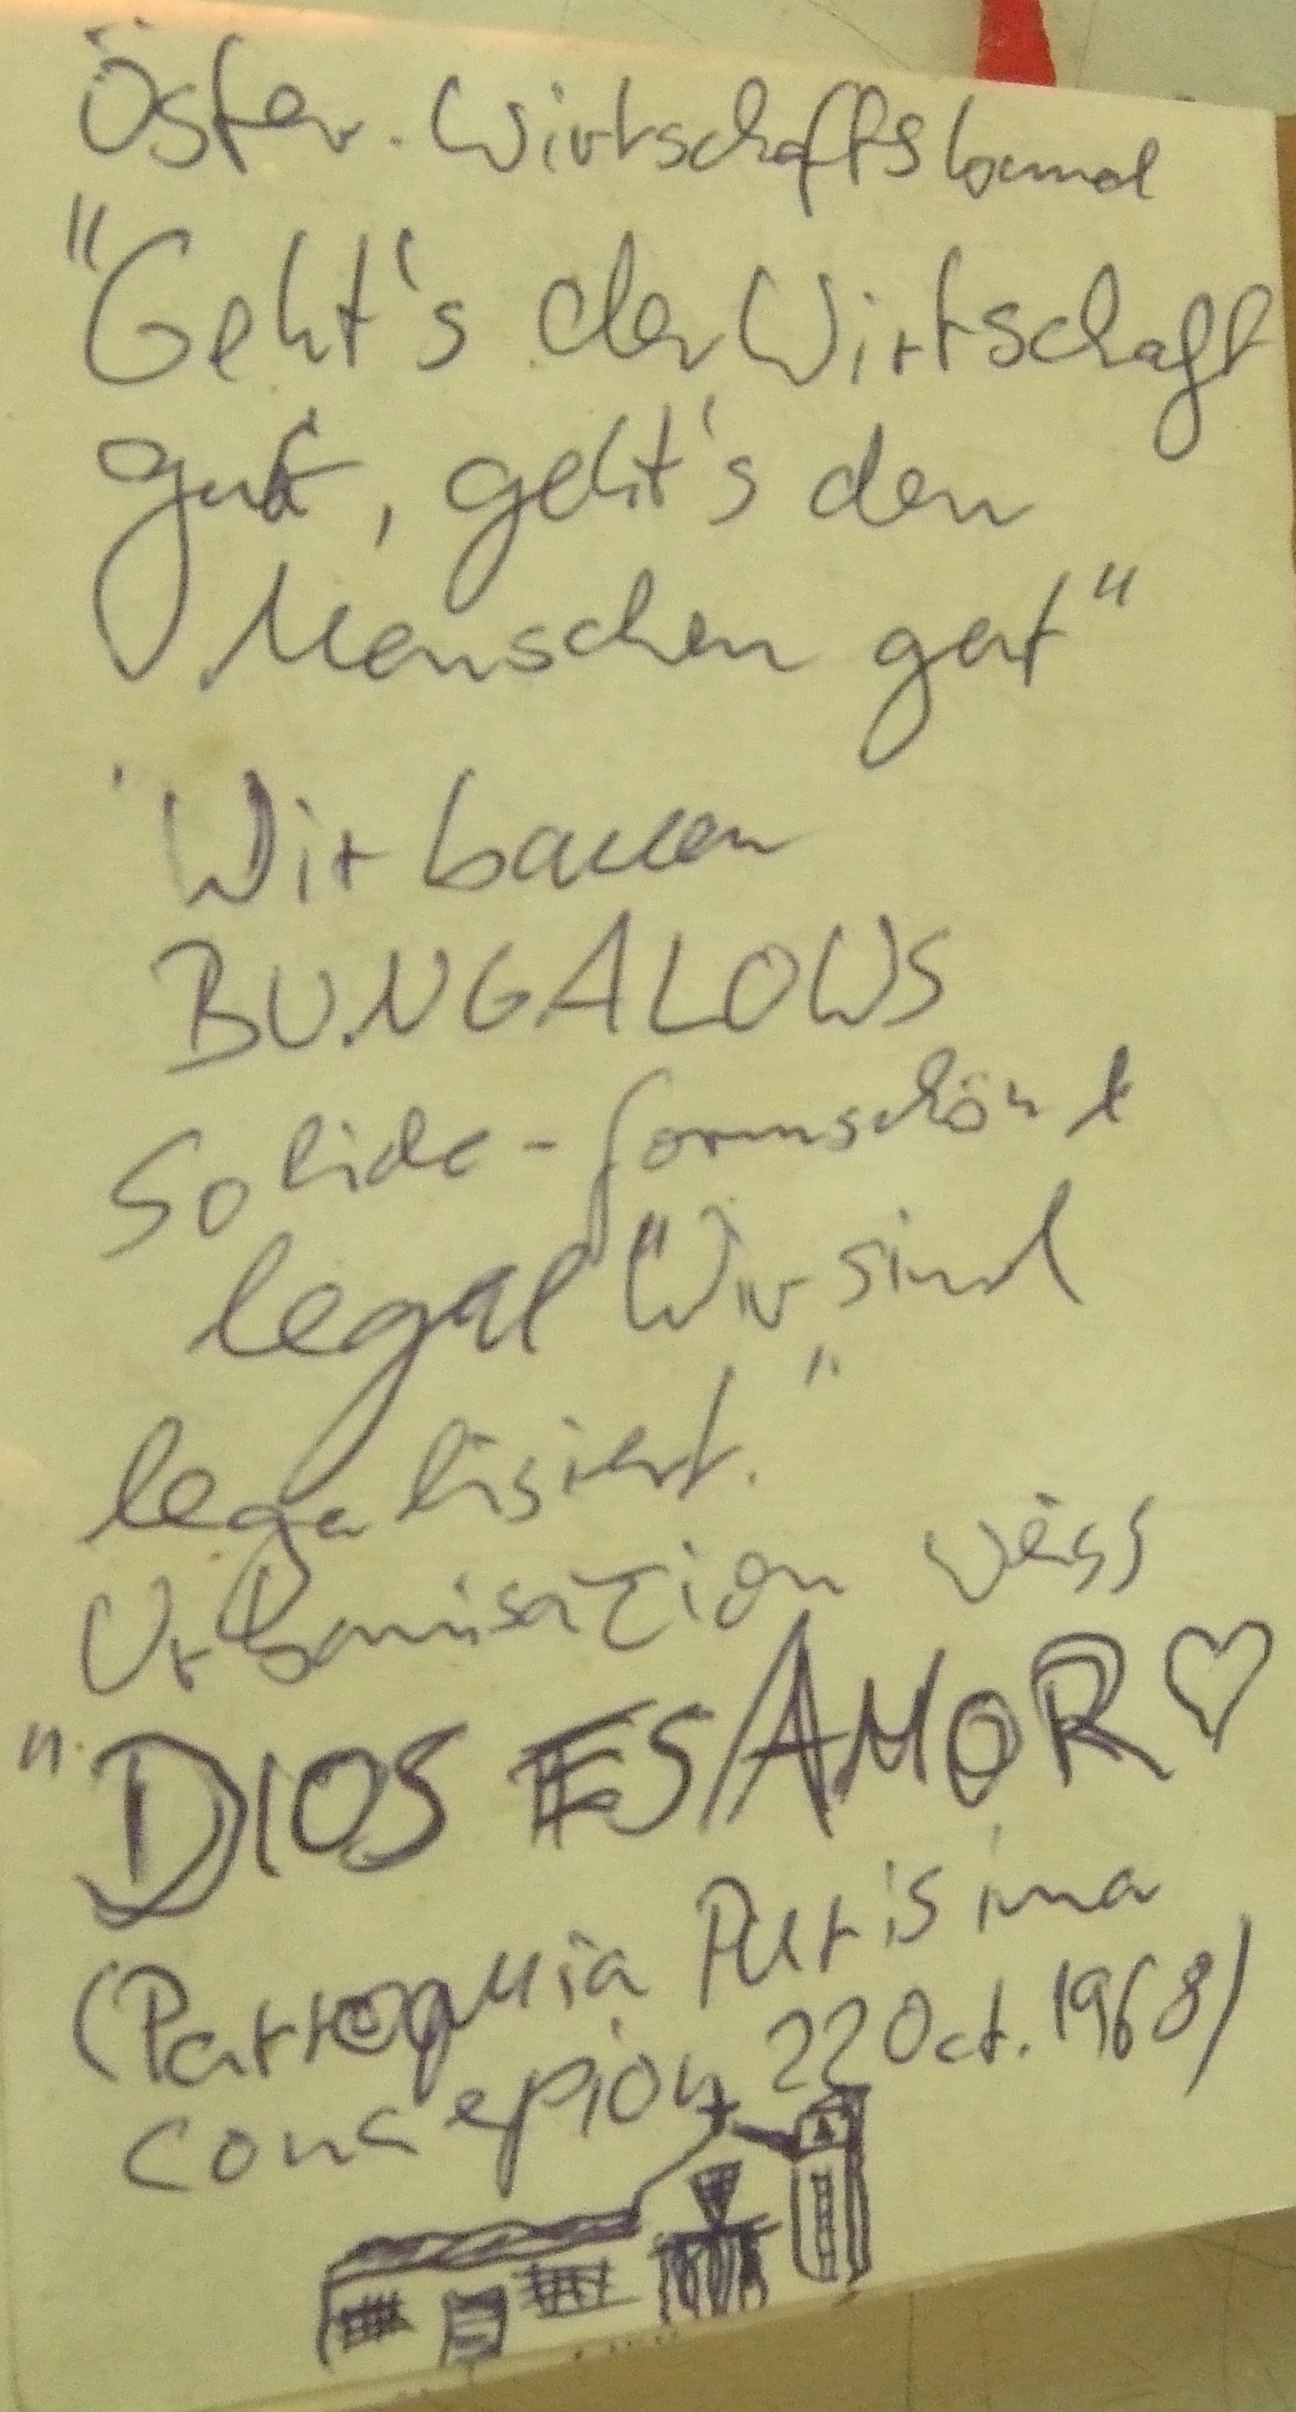 Öster. Wirtschaftsbund
"Geht's der Wirtschaft
gut, geht's den
Menschen gut"
Wir bauen
BUNGALOWS
Solide - formschön &
legal "Wir sind
legalisiert."
Urbanisation weiss
"DIOS ES AMOR ♡
(Parroquia Purisima
Concepion, 22 Oct. 1968)